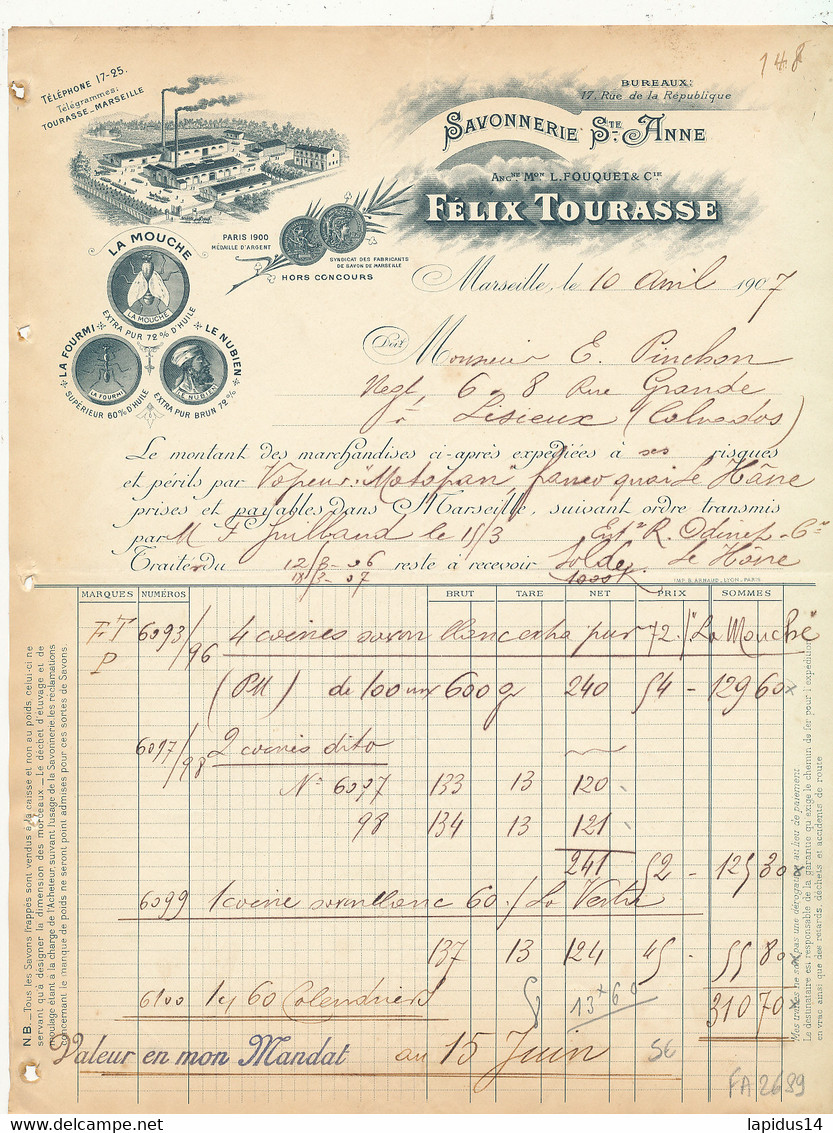 148
TÉLÉPHONE 17-25.
Télégrammes:
TOURASSE_MARSEILLE
BUREAUX:
17, Rue de la République
SAVONNERIE STE ANNE
ANCNE MON L. FOUQUET & CIE
FÉLIX TOURASSE
PARIS 1900
MÉDAILLE D'ARGENT
SYNDICAT DES FABRICANTS
DE SAVON DE MARSEILLE
HORS CONCOURS
LA MOUCHE
LA MOUCHE
EXTRA PUR 72% D'HUILE
LA FOURMI
LA FOURMI
SUPÉRIEUR 60% D'HUILE
LE NUBIEN
LE NUBIEN
EXTRA PUR BRUN 72%
Marseille, le 10 Avril 1907
Doit
Monsieur E. Pinchon
Negt, 6-8 Rue Grande
à Lisieux (Calvados)
Le montant des marchandises ci-après expédiées à ses risques
et périls par Vapeur franco quai Le Hâvre
prises et payables dans Marseille, suivant ordre transmis
par M F Guilbaud le 15/3
Traité du 12/3-06 reste à recevoir Solde Le Hâvre
18/3-07
IMP. B. ARNAUD, LYON, PARIS
MARQUES NUMÉROS BRUT TARE NET PRIX SOMMES
FT 6093/96 4 caisses savon blanc extra pur 72% "La Mouche"
P (PM) de 100 mx 600 gr 240 54 - 129 60
6097/98 2 caisses dito
N° 6097 133 13 120
98 134 13 121
241 52 - 125 30
6099 1 caisse savon blanc 60% La Vertu
137 13 124 45 - 55 80
6100 60 Calendriers
13 60
310 70
Valeur en mon Mandat au 15 Juin
FA 2689
N.B._Tous les Savons frappés sont vendus à la caisse et non au poids, celui-ci ne
servant qu'à désigner la dimension des morceaux._Le déchet d'étuvage et de
moulage étant à la charge de l'Acheteur, suivant l'usage de la Savonnerie, les réclamations
concernant le manque de poids ne seront point admises pour ces sortes de Savons.
Mes traites ne sont pas une dérogation au lieu de paiement.
Le destinataire est responsable de la garantie qu'exige le chemin de fer pour l'expédition
en vrac ainsi que des retards, déchets et accidents de route
www.delcampe.net
lapidus14